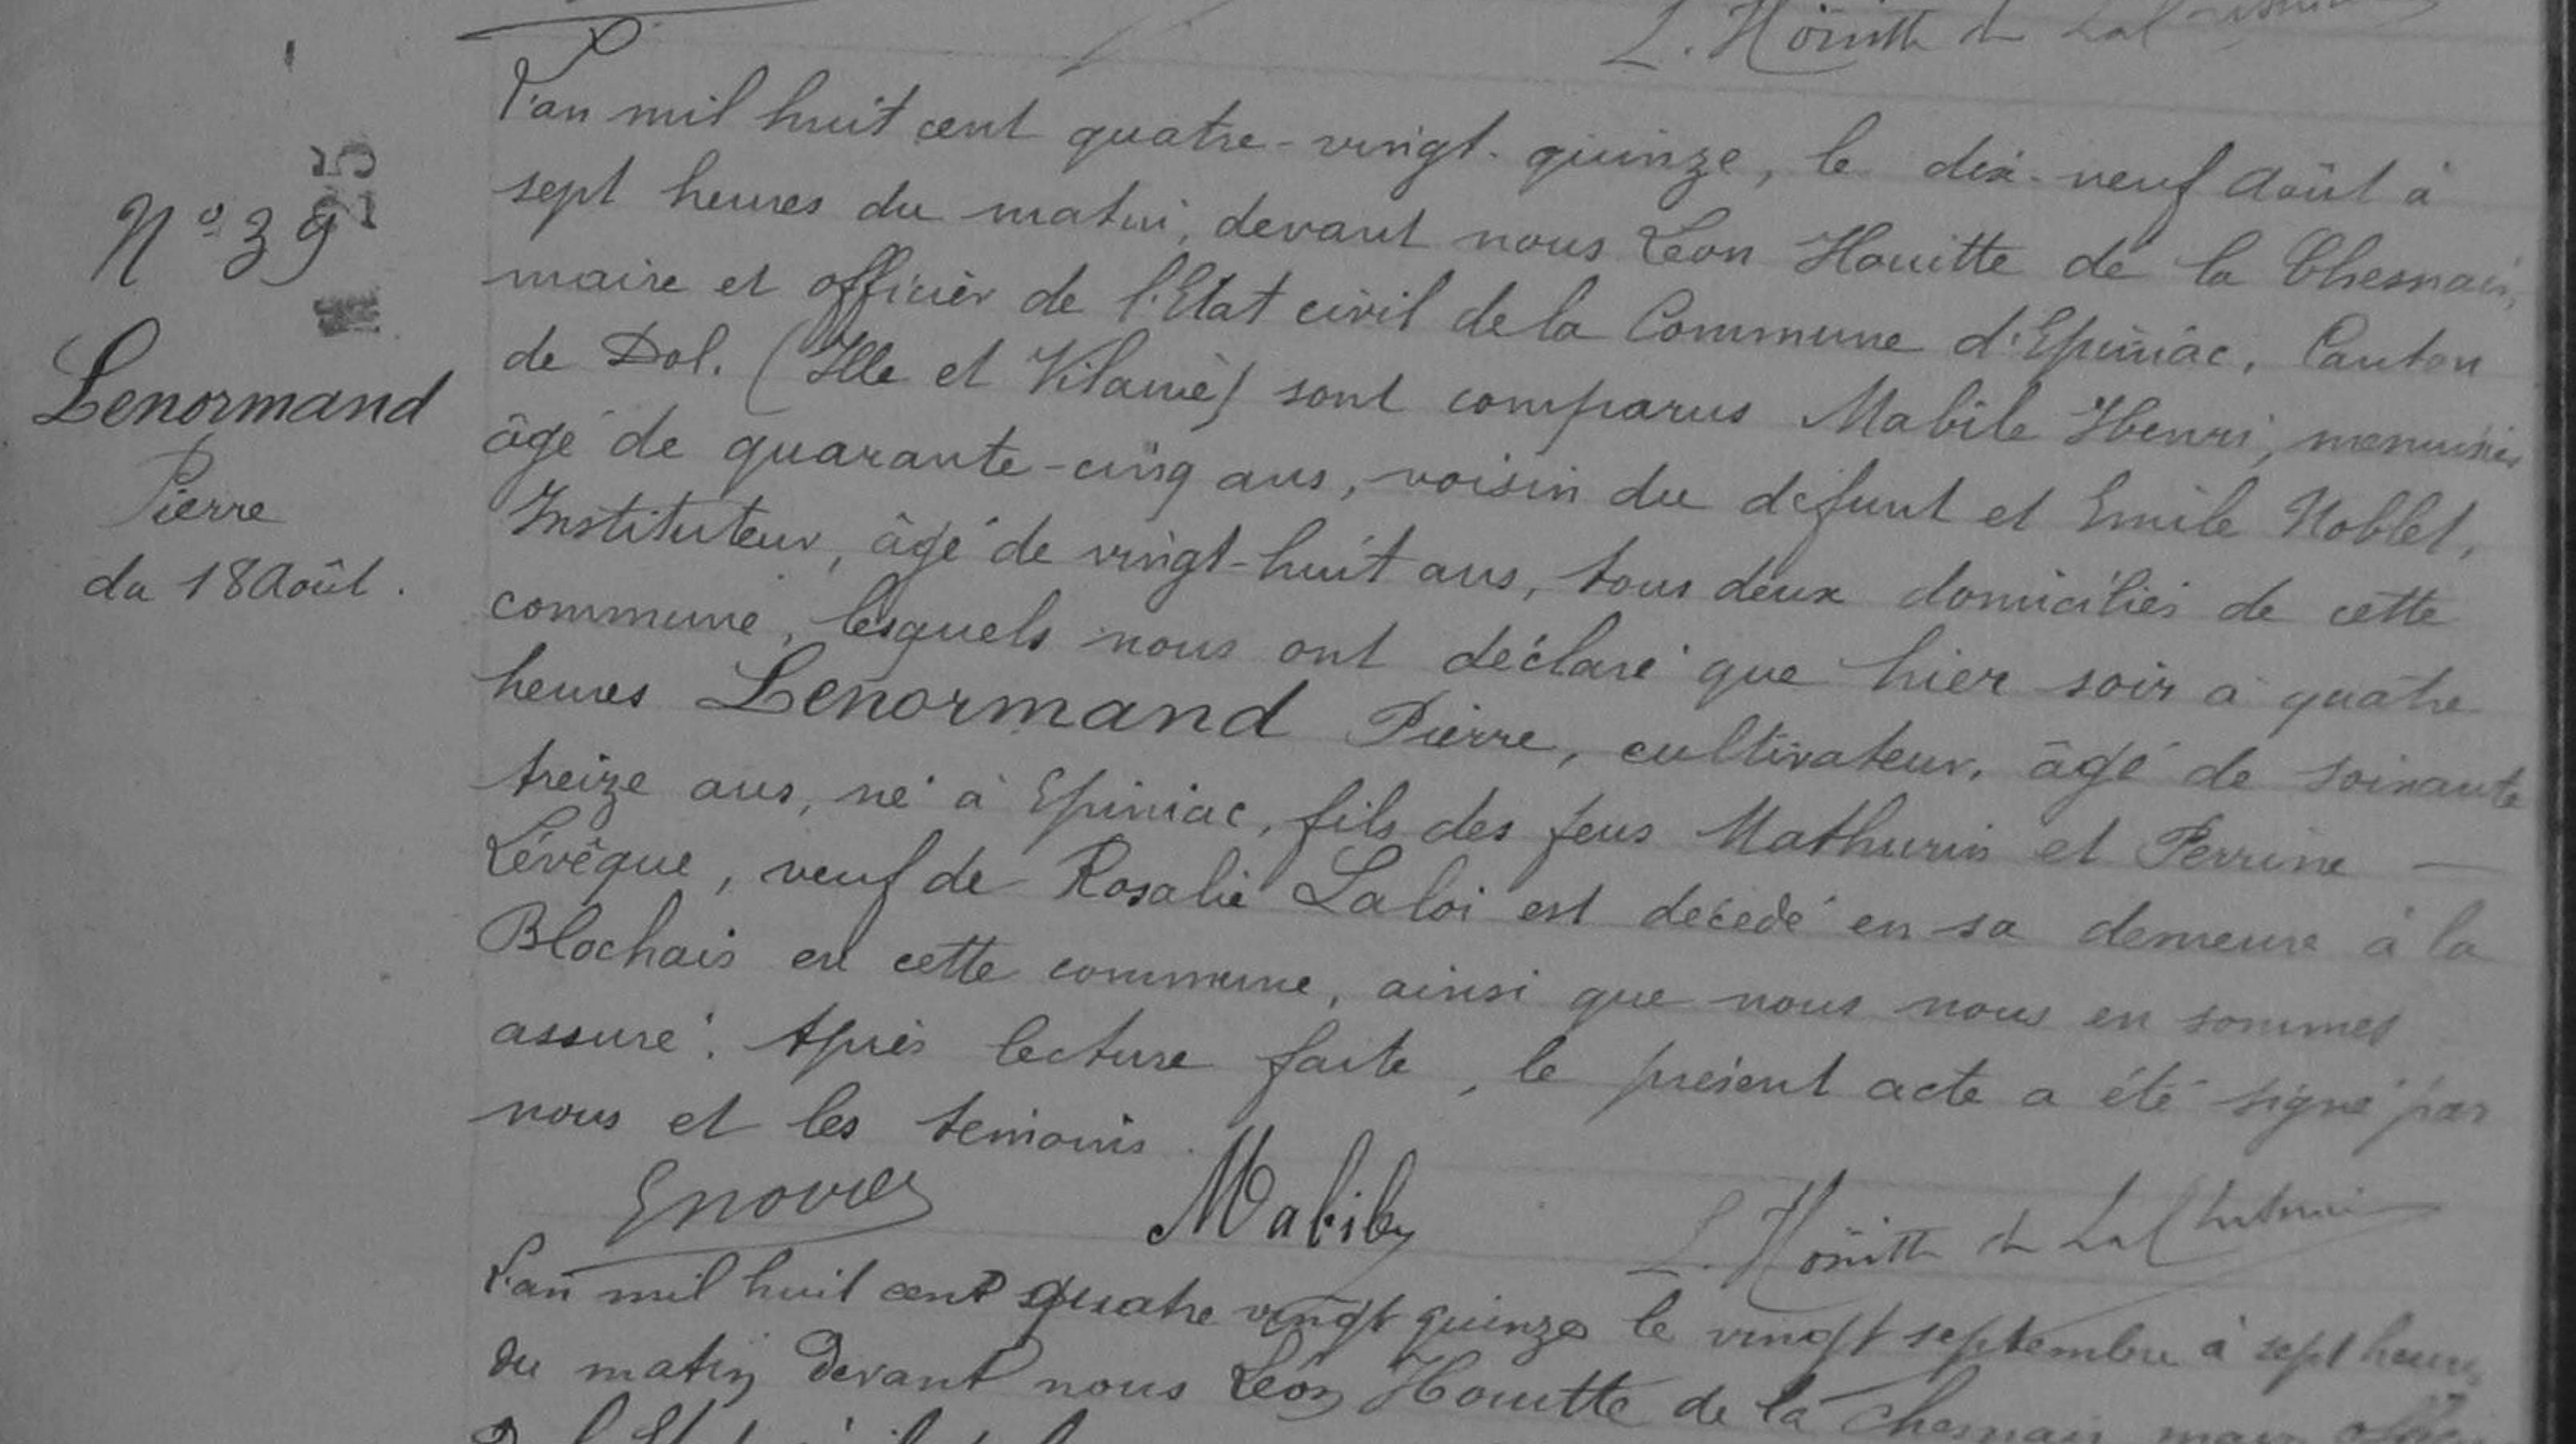 L. Höuitte de La
L'an mil huit cent quatre-vingt-quinze, le dix-neuf Août à
sept heures du matin, devant nous Léon Houitte de la Chesnais,
maire et officier de l'Etat civil de la Commune d'Epiniac, Canton
de Dol. (Ille et Vilaine) sont comparus Mabile Henri, menuisier
âgé de quarante-cinq ans, voisin du défunt et Emile Noblet,
Instituteur, âgé de vingt-huit ans, tous deux domiciliés de cette
commune, lesquels nous ont déclaré que hier soir à quatre
heures Lenormand Pierre, cultivateur, âgé de soixante
treize ans, né à Epiniac, fils des feus Mathurin et Perrine —
Lévêque, veuf de Rosalie Laloi est décédé en sa demeure à la
Blochais en cette commune, ainsi que nous nous en sommes
assuré. Après lecture faite, le présent acte a été signé par
nous et les témoins.
N° 39
25
Lenormand
Pierre
du 18 Août.
Mabile
L. Höuitte de La Chesnais
L'an mil huit cent quatre vingt quinze le vingt septembre à sept heures
du matin devant nous Léon Houitte de la Chesnais maire